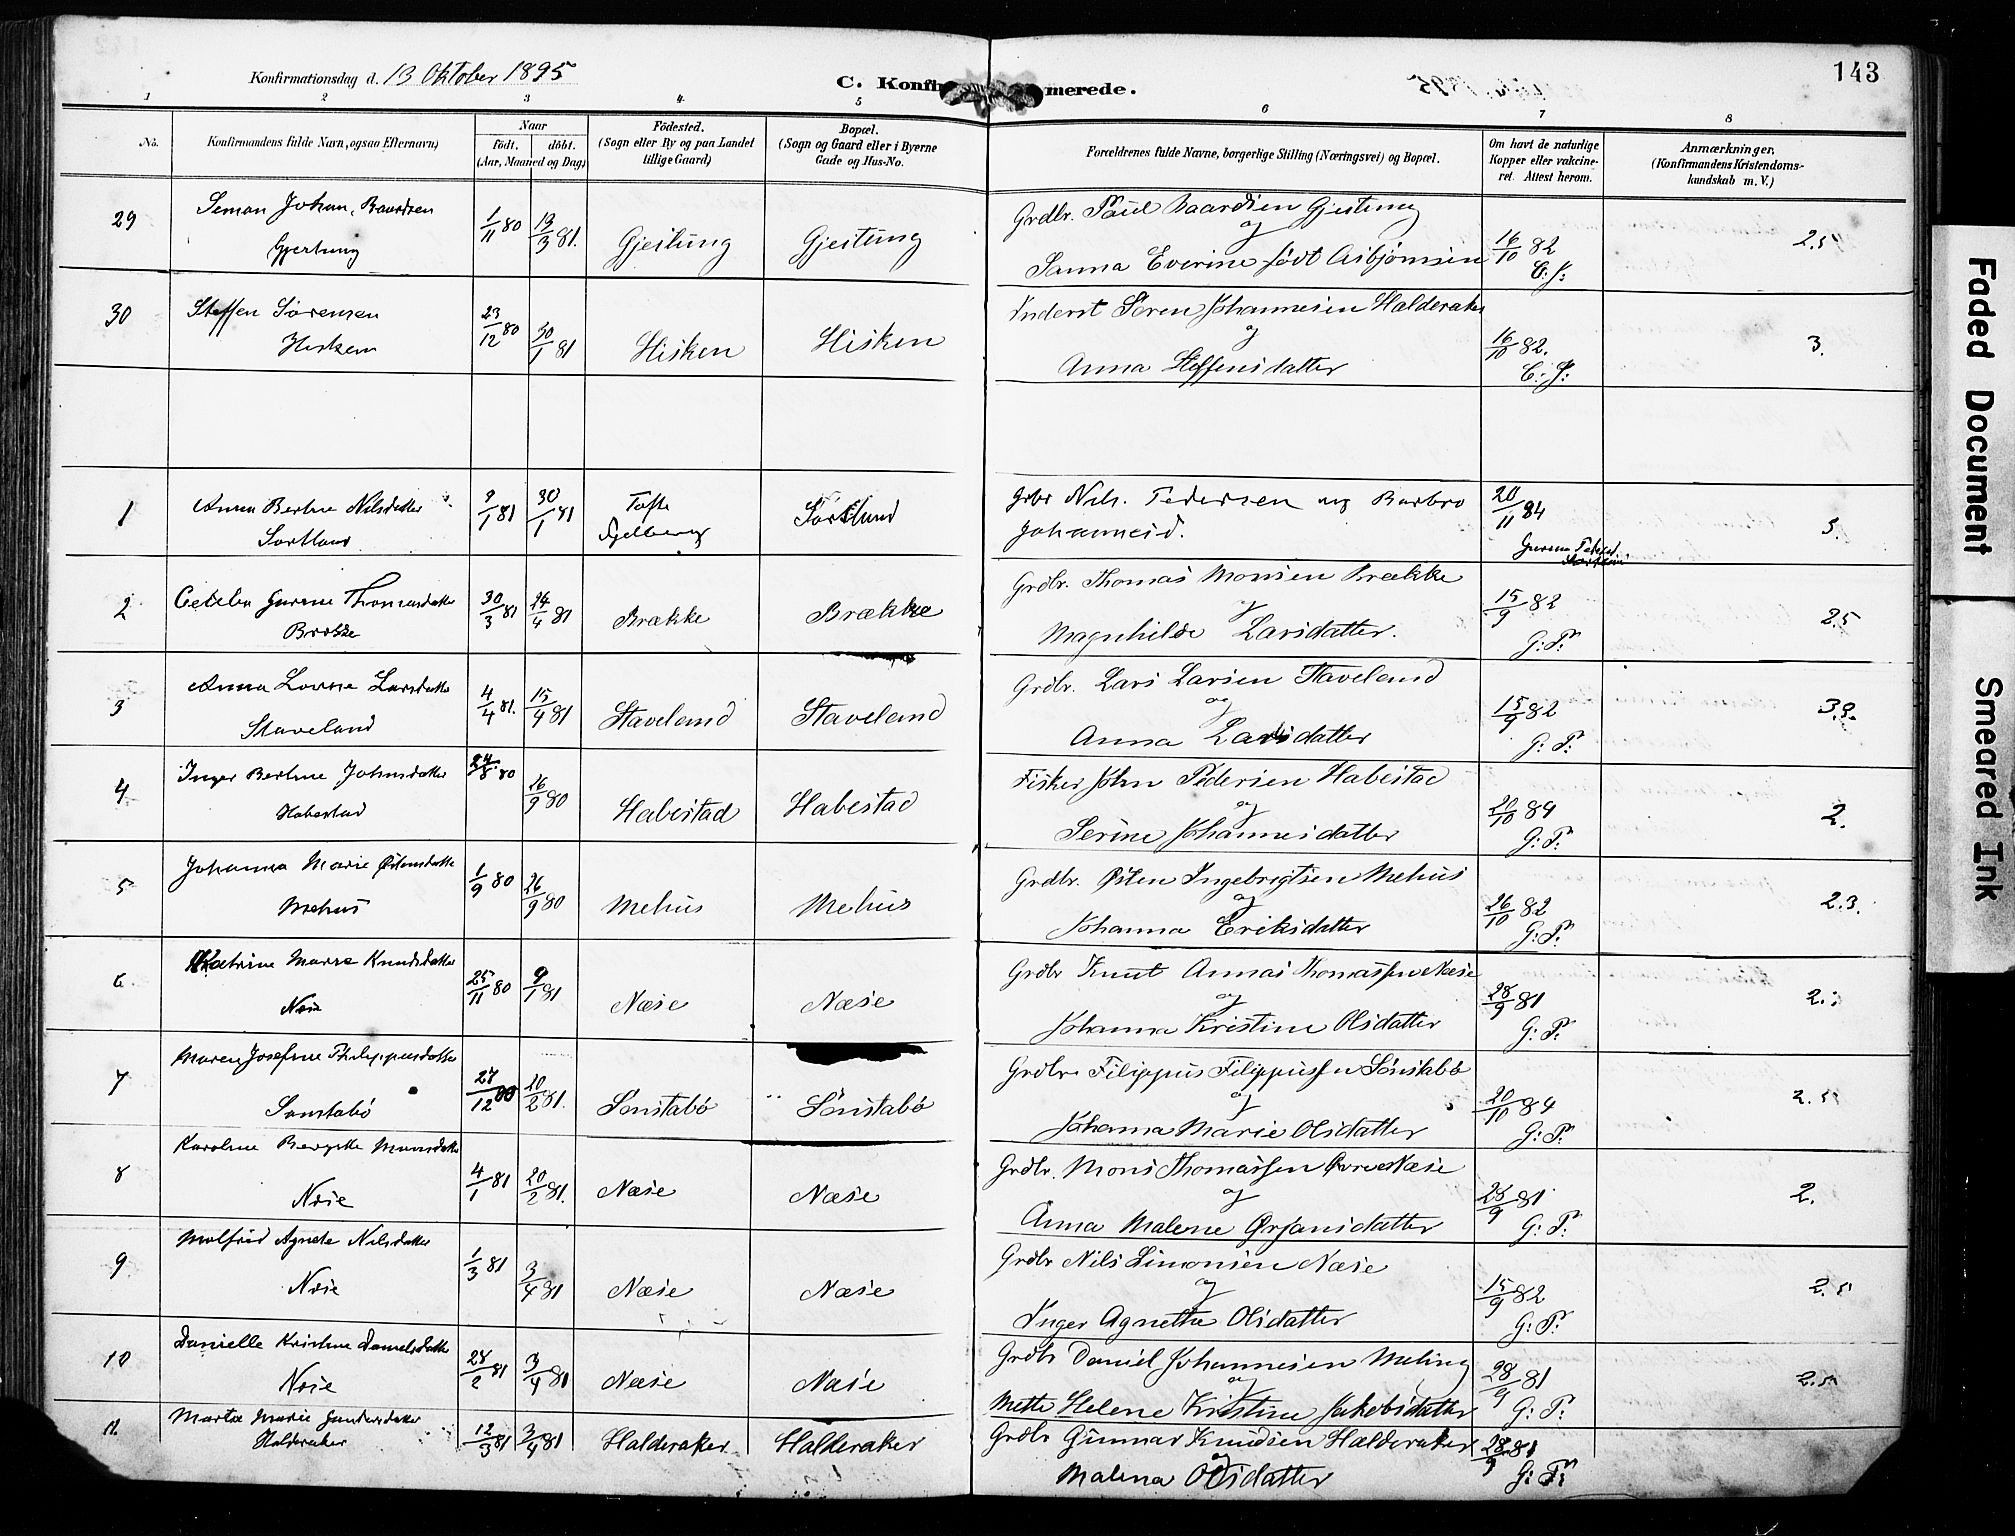 143
Konfirmationsdag d. 13 Oktober 1895
C. Konfir merede.
1 2 3 4. 5 6 7 8
No. Konfirmandens fulde Navn, ogsaa Efternavn)
Naar
födt. döbt.
(Aar, Maaned og Dag)
Födested.
(Sogn eller By og paa Landet
tillige Gaard)
Bopæl.
(Sogn og Gaard eller i Byerne
Gade og Hus-No.
Forældrenes fulde Navne, borgerlige Stilling (Næringsvei) og Bopæl.
Om havt de naturlige
Kopper eller vakcine-
ret. Attest herom.
Anmærkninger,
(Konfirmandens Kristendoms-
kundskab m. V.)
29 Simon Johan Baardsen
Gjestung
1/11 80 13/3 81. Gjestung Gjestung
Grdbr. Paul Baardsen Gjestung
og
Sanna Everine födt Asbjörnsen
16/10 82
C: J:
30 Steffen Sörensen
Hisken
23/12 80 30/1 81 Hisken Hisken
Inderst Sören Johannesen Halderaker
og
Anna Steffensdatter
16/10 82.
C: J:
3.
1 Anna Bertine Nilsdatter
Sortland
9/1 81 30/1 81 Tofte
Sortland
Grbr Nils Pedersen og Barbro
Johannesd.
20/11 84
3.
2 Gurine Thomasdatter
Brække
30/3 81 24/4 81 Brække Brække
Grdbr. Thomas Monsen Brække
og
Magnhilde Larsdatter.
15/9 82
G: P:
2.5
3 Anna Lovise Larsdatter
Staveland
4/4 81. 15/4 81 Staveland Staveland
Grdbr. Lars Larsen Staveland
og
Anna Larsdatter
15/9 82
G: P:
4 Inger Bertine Johnsdatter
Habestad
24/8 80 26/9 80 Habestad Habestad
Fisker John Pedersen Habestad
og
Serine Johannesdatter
20/10 84
G: P:
2.
5 Johanna Marie Østensdatter
Mehus
1/9 80 26/9 80 Mehus Mehus
Grdbr. Østen Ingebrigtsen Mehus
og
Johanna Eriksdatter
26/10 82
G: P:
2.3.
6 Katrine Marie Knudsdatter
Næse
25/11 80 9/1 81 Næse Næse
Grdbr Knut Annas Thomassen Næse
og
Johanna Kristine Olsdatter
28/9 81
G: P:
7 Maren Josefine Philippusdatter
Sønstabö
27/12 80 20/2 81. Sönstabö Sönstabö
Grdbr Filippus Filippussen Sönstabö
og
Johanna Marie Olsdatter
20/10 84
G: P:
8 Karoline Bergitte Monsdatter
Næse
4/1 81 20/2 81. Næse Næse
Grdbr. Mons Thomassen Øvre Næse
og
Anna Malene Ørjansdatter
28/9 81
G: P:
2.
9 Molfrid Agnete Nilsdatter
Næse
1/3 81 3/4 81 Næse Næse
Grdbr Nils Simonsen Næse
og
Inger Agnethe Olsdatter
15/9 82
G: P:
2.5
10 Danielle Kristine Danielsdatter
Næse
28/2 81 3/4 81 Næse Næse
Grdbr Daniel Johannesen Meling
og
Mette Helene Kristine Jakobsdatter
28/9 81
G: P:
2.5
11. Marta Marie Gundersdatter
Halderaker
12/3 81 3/4 81 Halderaker Halderaker
Grdbr Gunnar Knudsen Halderaker
og
Malena Olsdatter
28/9 81
G: P:
Faded Document
Smeared Ink